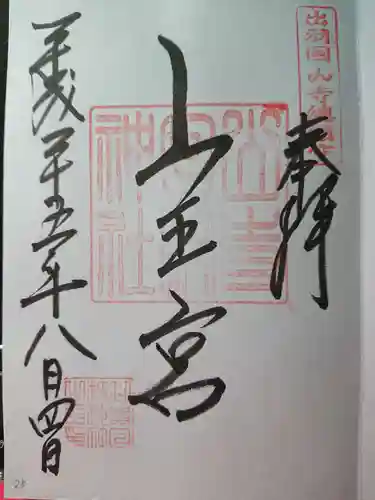 出羽國山寺
奉拝
山王宮
神社
平成二十五年八月四日
28